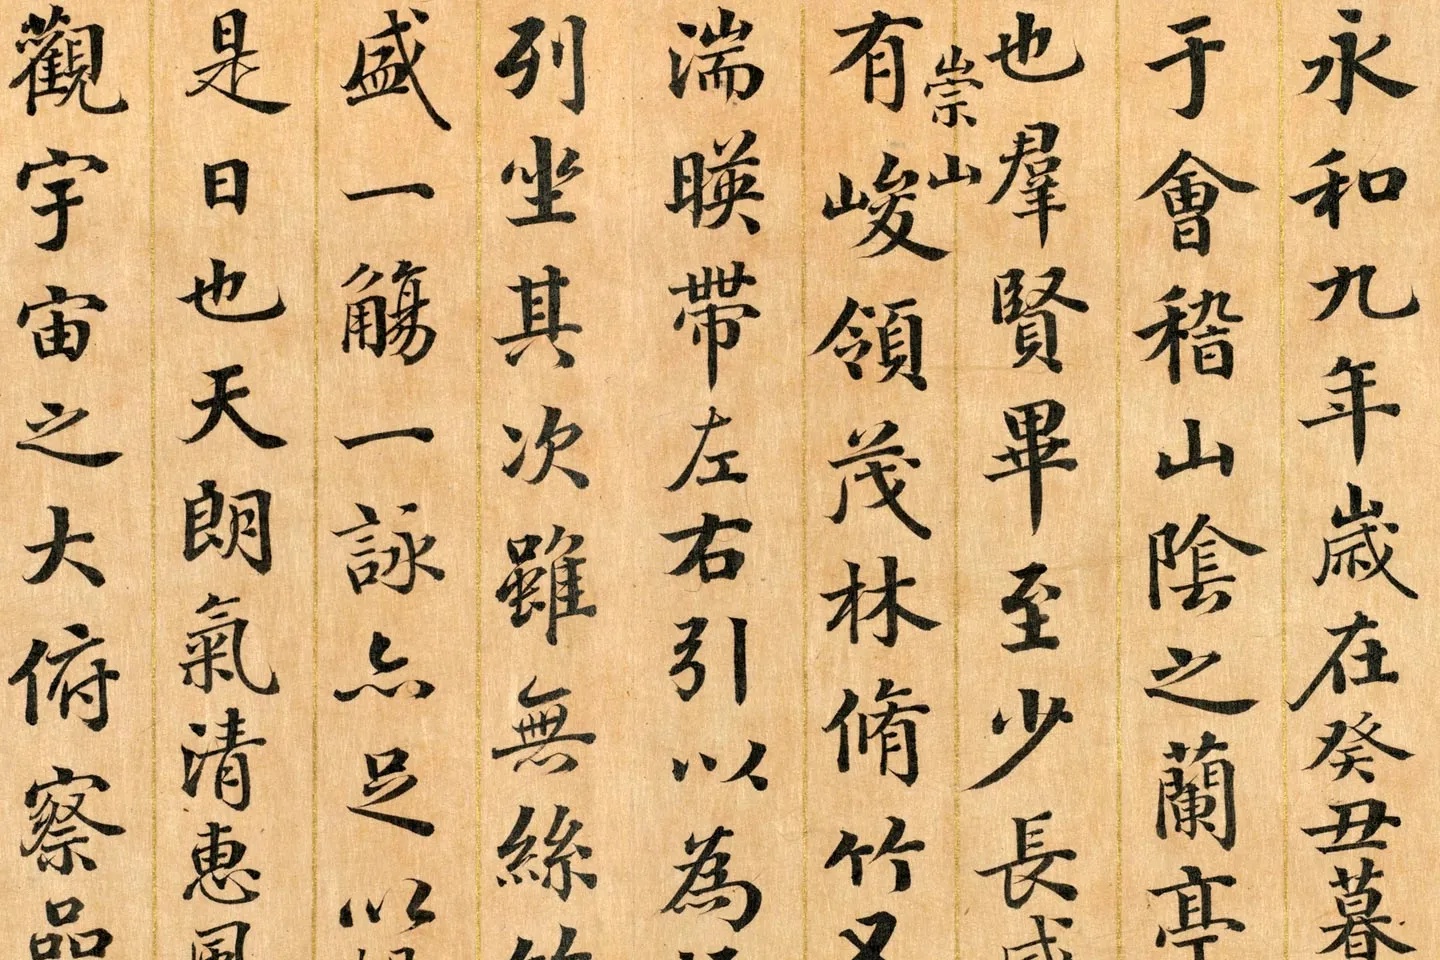 永和九年歲在癸丑暮
于會稽山陰之蘭亭
也羣賢畢至少長咸
有崇山峻領茂林脩竹又
湍暎帶左右引以為
列坐其次雖無絲竹
盛一觴一詠亦足以暢
是日也天朗氣清惠風
觀宇宙之大俯察品